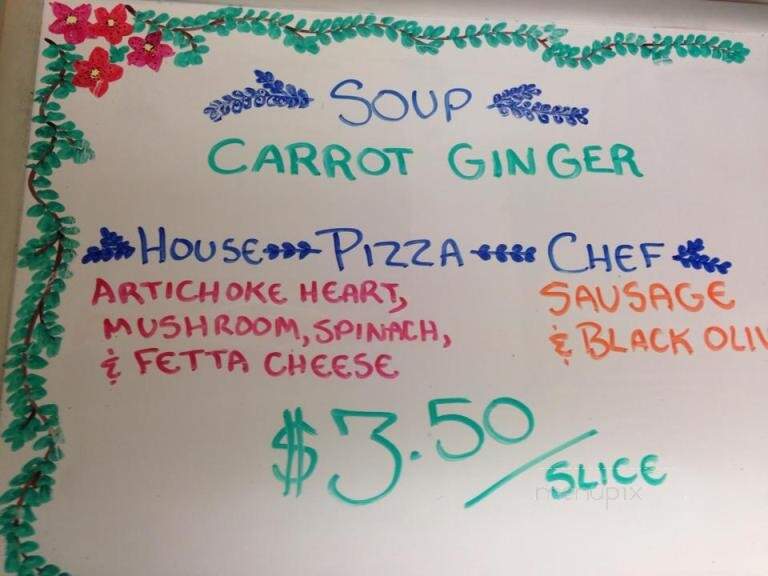 SOUP
CARROT GINGER
HOUSE PIZZA CHEF
ARTICHOKE HEART,
MUSHROOM, SPINACH,
& FETTA CHEESE
SAUSAGE
& BLACK OLIV
$3.50/SLICE
menupix